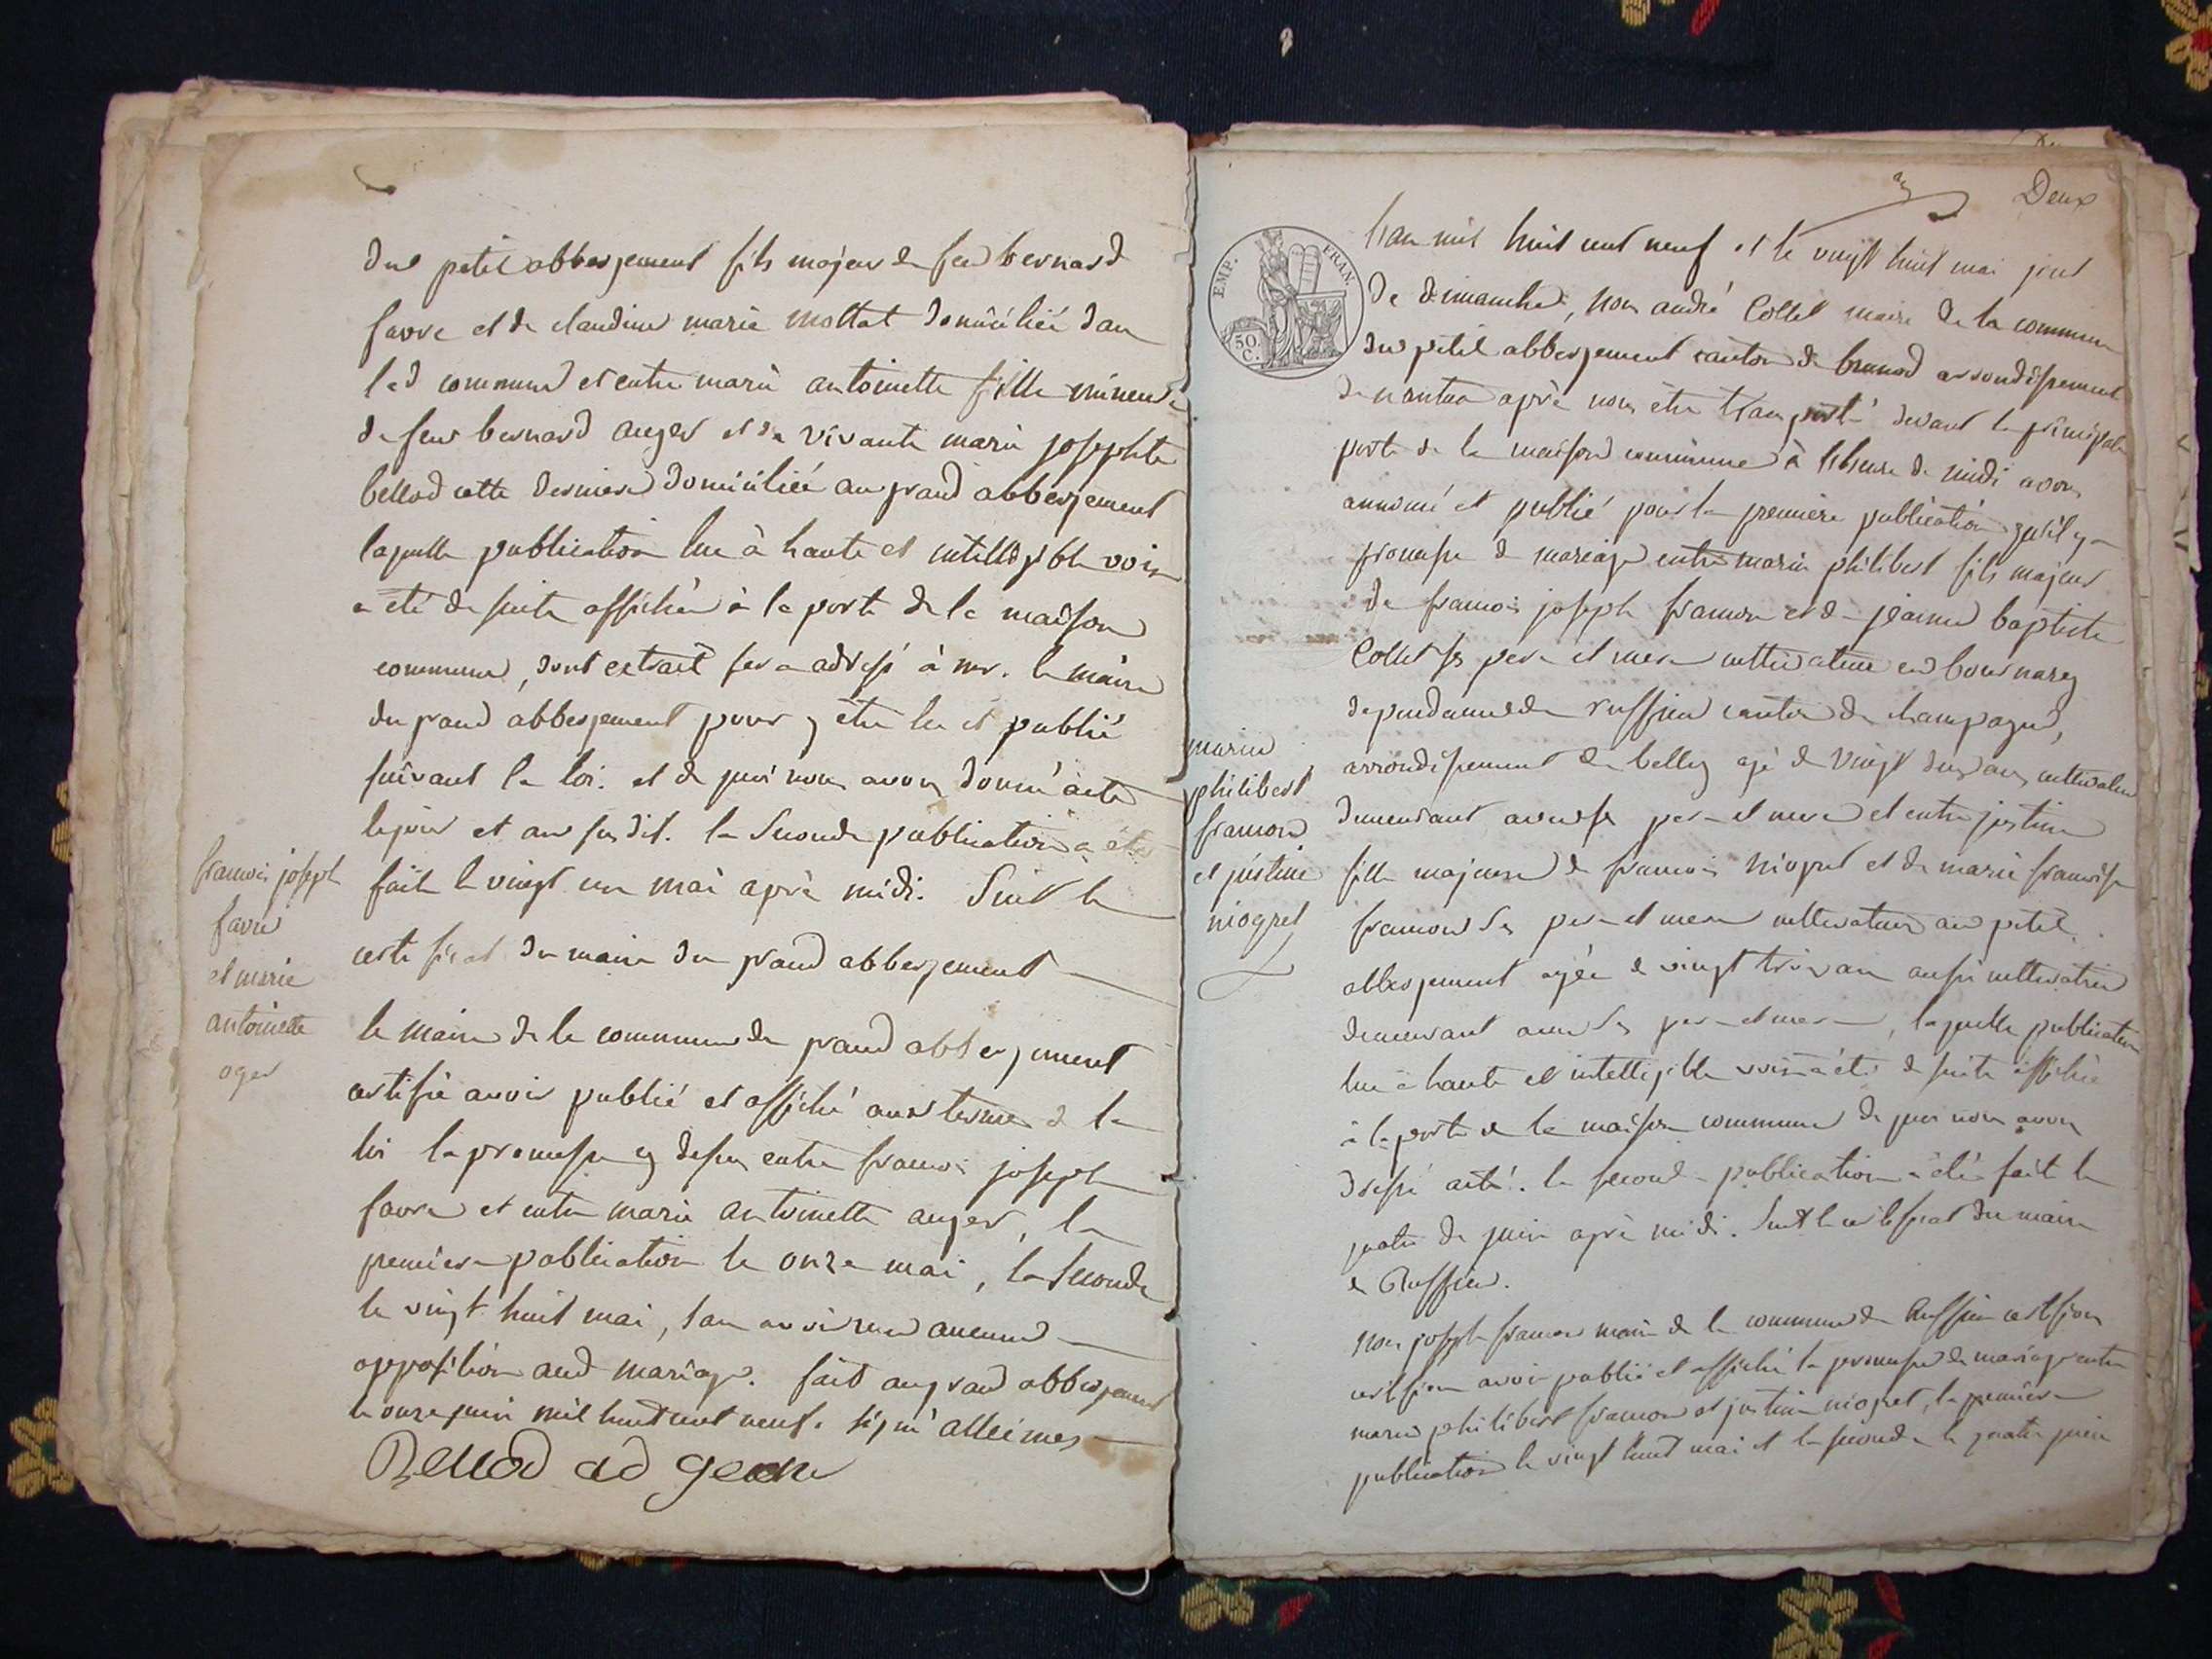 due petit abbergement fils majeur de feu bernard
favre et de claudine marie mottat domiciliée dan
lad commune et entre marie antoinette fille mineure
de feu bernard auger et de vivante marie josephte
bellod cette derniere domiciliée au grand abbergement
laquelle publication lue à haute et intelligible voix
a été de suite affichée à la porte de la maison
commune, dont extrait sera adressé à mr. le maire
du grand abbergement pour y être lu et publié
suivant la loi. et de quoi nous avons donné acte
lejour et an susdit. la seconde publication a été
faite le vingt un mai après midi. Suit le
certificat du maire du grand abbergement
francois joseph
favre
et marie
antoinette
oger
le maire de la commune du grand abbergement
certifie avoir publié et affiché aux termes de la
loi la promesse cy dessus entre francois joseph
favre et entre marie antoinette auger, la
premiere publication le onze mai, la seconde
le vingt huit mai, sans aucune
opposition aud mariage. fait au grand abbergement
le onze juin mil huit cent neuf. signé alleimes
Bellod ad
Deux
EMP. FRAN.
50.
C.
lan mil huit cent neuf et le vingt huit mai jour
de dimanche, nous andré Collet maire de la commune
du petit abbergement canton de brenod arrondissement
de nantua après nous être transporté devant la principale
porte de la maison commune à l'heure de midi avons
annoncé et publié pour la premiere publication qu'il y a
promesse de mariage entre marin philibert fils majeur
de francois joseph framon et de jeanne baptiste
Collet ses pere et mere cultivateur
dependance de ruffieu canton de champagne,
arrondissement de belley agé de vingt deux ans, cultivateur
demeurant avec ses pere et mere et entre justine
fille majeure de francois niogret et de marie francoise
framon ses pere et mere cultivateur au petit
abbergement agée de vingt trois ans aussi cultivatrice
demeurant avec ses pere et mere, laquelle publication
lue à haute et intelligible voix a été de suite affichée
à la porte de la maison commune de quoi nous avons
dressé acte. la seconde publication a été faite le
quatre de juin après midi. Suit le certificat du maire
de Ruffieu.
marin
philibert
framon
et justine
niogret
Nous joseph framon maire de la commune de Ruffieu certifions
certifions avoir publié et affiché la promesse de mariage entre
marin philibert framon et justine niogret, la premiere
publication le vingt huit mai et la seconde le quatre juin